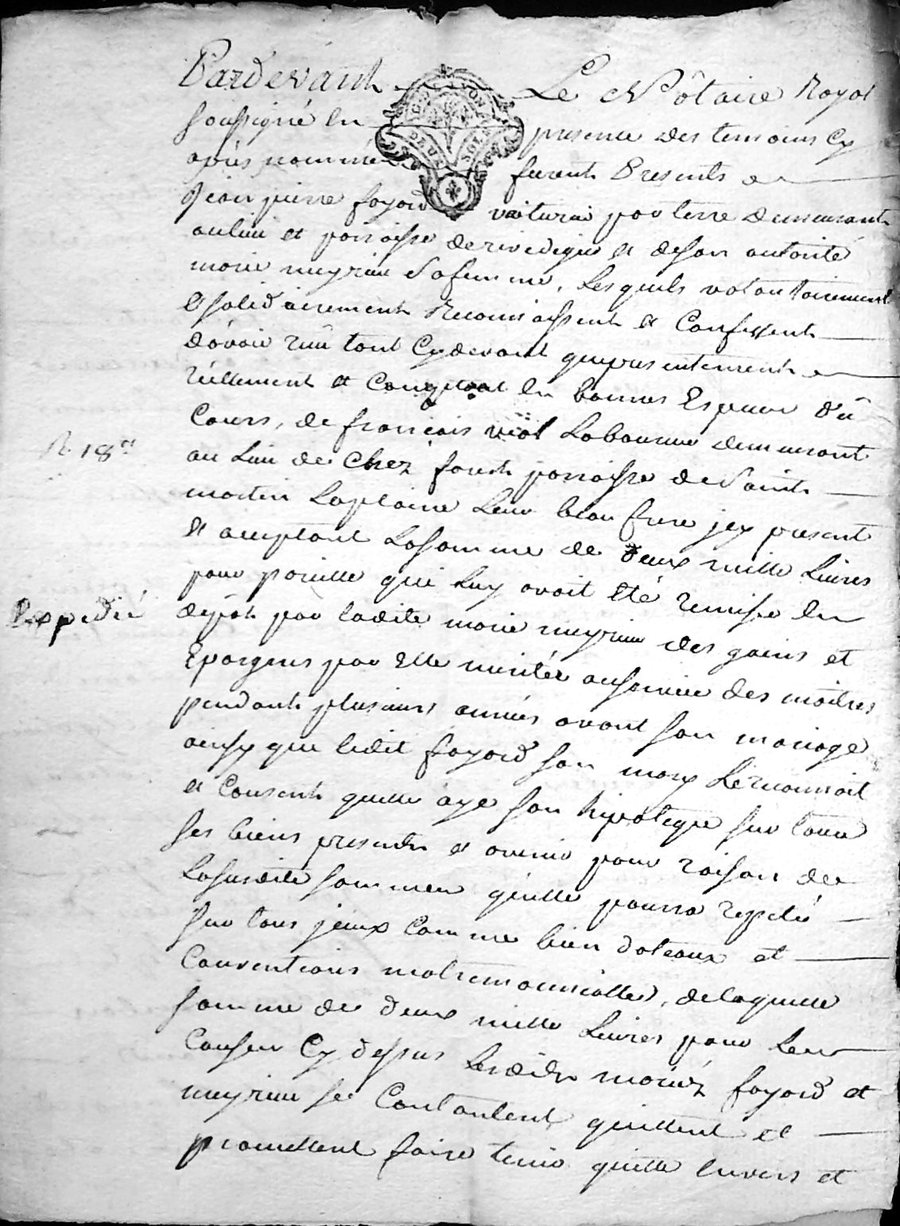 Pardevant Le Nôtaire Royal
soussigné en presence des temoins Cy
aprés nommés furent Presents
Jean pierre fayard voiturié par terre demeurant
au lieu et parroisse derivedigié et deson autorité
marie meyrieu safemme, Lesquels volontairement
et solidairement Reconnaissent et Confessent
d'avoir reüu tant Cydevant quepresentement
réellement et Comptant En bonnes Especes du
Cours, de francois viol Laboureur demeurant
au Lieu de Chez fonds parroisse deSaint
martin Laplaine Leur beau frere jcy present
et aceptant Lasomme de deux mille Livres
pour pareille qui Luy avoit Eté remise En
depôt par ladite marie meyrieu des gains et
Epargnes par Elle meritée auservice des maitres
pendant plusieurs années avant son mariage
ainsy que ledit fayard son mary Lereconnoit
et Consent quelle aye son hipoteque sur tous
ses biens presents et avenir pour raison de
Lasusdite somme quelle pourra repeté
sur tous jceux Comme bien doteaux et
Conventions matrimonialles, delaquelle
somme de deux mille Livres pour Leur
Causeu Cy dessus Lesdits mariéz fayard et
meyrieu se Contentent quittent et
promettent faire tenir quitte Envers et
R. 18ˢ
Expedié
G. D. LYON
DEUX SOLS